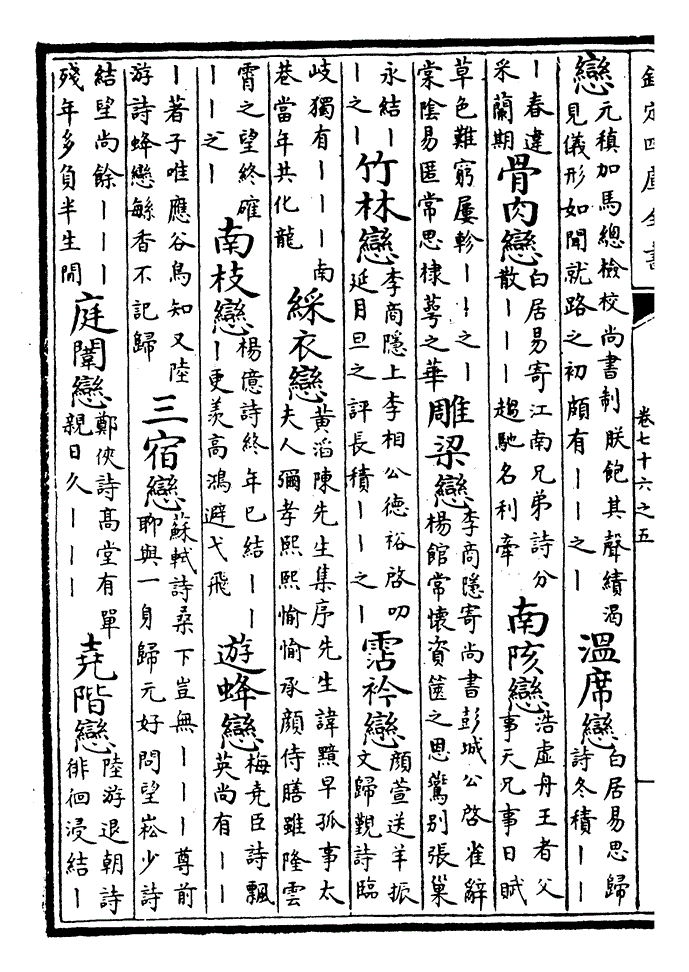 欽定四庫全書 卷七十六之五
戀 元稹加馬總檢校尚書制朕飽其聲績渴見儀形如聞就路之初頗有丨丨之丨 溫席戀 白居易思歸詩冬積丨丨
丨春違采蘭期 骨肉戀 白居易寄江南兄弟詩分散丨丨丨趨馳名利牽 南陔戀 浩虛舟王者父事天兄事日賦
草色難窮屢軫丨丨之丨棠陰易匿常思棣萼之華 雕梁戀 李商隱寄尚書彭城公啓雀辭楊館常懷資篋之恩鶯別張巢
永結丨丨之丨 竹林戀 李商隱上李相公德裕啓叨延月旦之評長積丨丨之丨 霑衿戀 顔萱送羊振文歸覲詩臨
岐獨有丨丨丨南巷當年共化龍 綵衣戀 黃滔陳先生集序先生諱黯早孤事太夫人彌孝熙熙愉愉承顔侍膳雖隆雲
霄之望終確丨丨之丨 南枝戀 楊億詩終年已結丨丨丨更羨高鴻避弋飛 遊蜂戀 梅堯臣詩飄英尚有丨丨
丨著子唯應谷鳥知又陸游詩蜂戀餘香不記歸 三宿戀 蘇軾詩桑下豈無丨丨丨尊前聊與一身歸元好問望崧少詩
結望尚餘丨丨丨殘年多負半生閒 庭闈戀 鄭俠詩高堂有單親日久丨丨丨 堯階戀 陸游退朝詩徘徊浸結丨